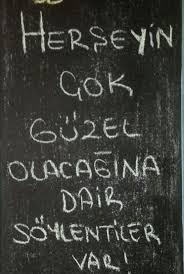 HERŞEYİN
ÇOK
GÜZEL
OLACAĞINA
DAİR
SÖYLENTİLER
VAR!